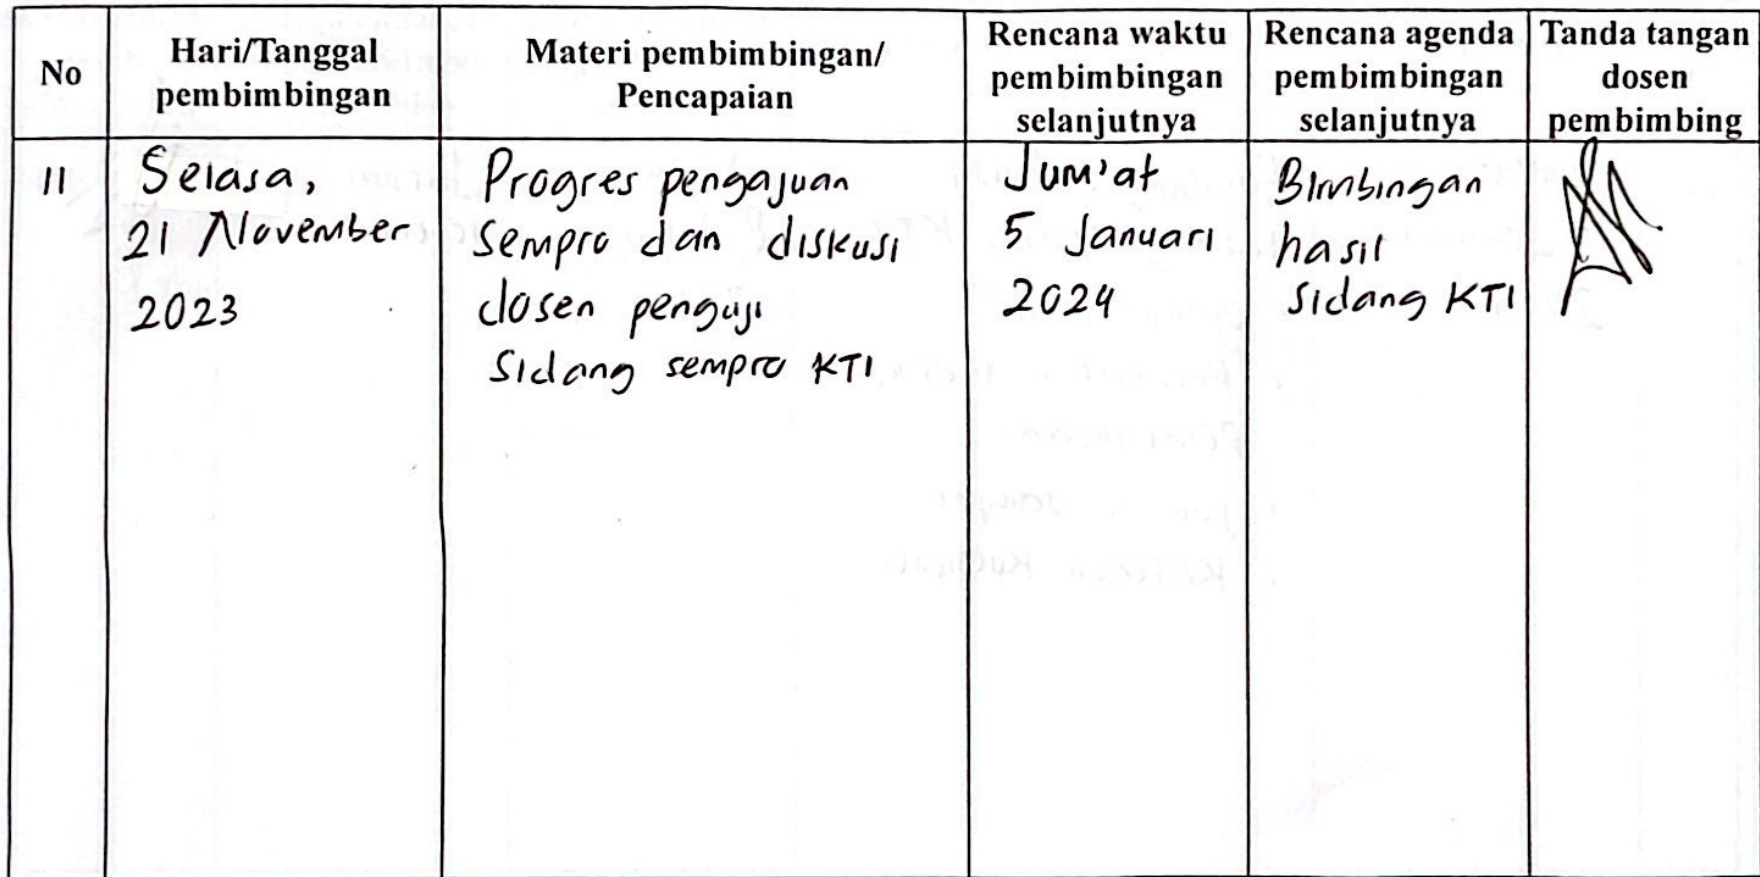 No
Hari/Tanggal
pembimbingan
Materi pembimbingan/
Pencapaian
Rencana waktu
pembimbingan
selanjutnya
Rencana agenda
pembimbingan
selanjutnya
Tanda tangan
dosen
pembimbing
11
Selasa,
21 November
2023
Progres pengajuan
sempro dan diskusi
dosen penguji
Sidang sempro KTI
Jum'at
5 Januari
2024
Bimbingan
hasil
Sidang KTI